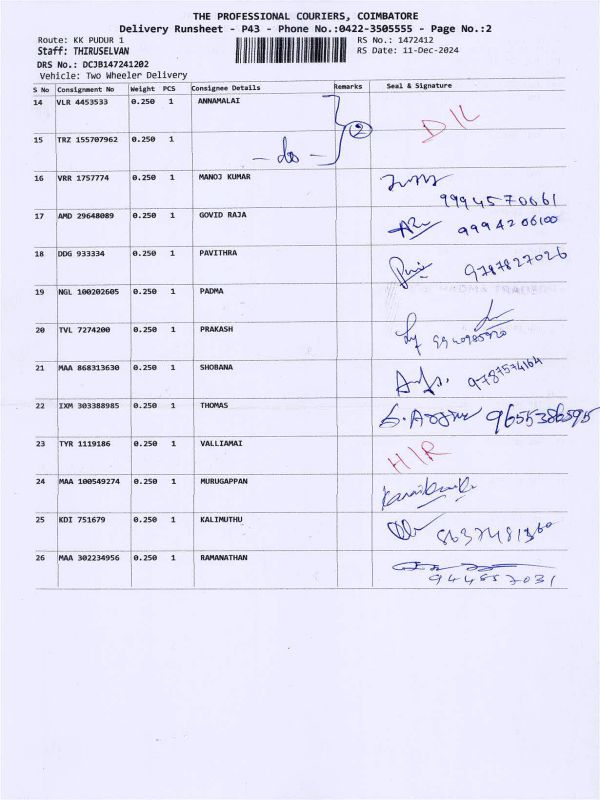 THE PROFESSIONAL COURIERS, COIMBATORE
Delivery Runsheet - P43 - Phone No.:0422-3505555 - Page No.:2
Route: KK PUDUR 1 RS No.: 1472412
Staff: THIRUSELVAN RS Date: 11-Dec-2024
DRS No.: DCJB147241202
Vehicle: Two Wheeler Delivery
S No Consignment No Weight PCS Consignee Details Remarks Seal & Signature
14 VLR 4453533 0.250 1 ANNAMALAI 2 D/L
15 TRZ 155707962 0.250 1 - do -
16 VRR 1757774 0.250 1 MANOJ KUMAR
9994570061
17 AMD 29648089 0.250 1 GOVID RAJA 9994206100
18 DDG 933334 0.250 1 PAVITHRA 9787827026
19 NGL 100202605 0.250 1 PADMA
20 TVL 7274200 0.250 1 PRAKASH
21 MAA 868313630 0.250 1 SHOBANA 9787574164
22 IXM 303388985 0.250 1 THOMAS 9655386595
23 TYR 1119186 0.250 1 VALLIAMAI H/R
24 MAA 100549274 0.250 1 MURUGAPPAN
25 KDI 751679 0.250 1 KALIMUTHU
26 MAA 302234956 0.250 1 RAMANATHAN